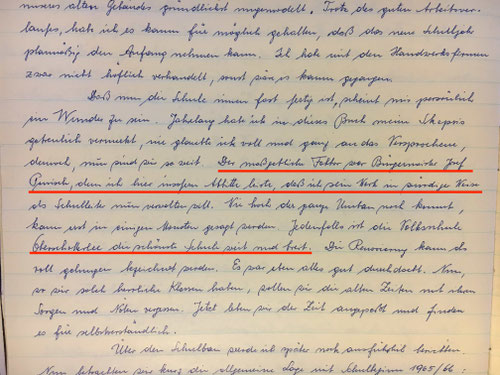 unseres alten Gebäudes gründlichst umgewandelt. Trotz des guten Arbeitsver-
laufes, hatte ich es kaum für möglich gehalten, daß das neue Schuljahr
planmäßig den Anfang nehmen kann. Ich habe mit den Handwerksfirmen
zwar nicht höflich verhandelt, sonst wär's kaum gegangen.
Daß nun die Schule innen fast fertig ist, scheint mir persönlich
ein Wunder zu sein. Jahrelang habe ich in dieses Buch meine Skepsis
vermerkt, nie glaubte ich voll und ganz an das Versprochene,
dennoch, nun sind wir so weit. Der maßgebliche Faktor war Bürgermeister Josef
dem ich hier Abbitte leiste, daß ich sein Werk in Weise
als Schulleiter nun verwalten soll. Wie hoch der ganze Umbau noch kommt,
kann erst in einigen Monaten gesagt werden. Jedenfalls ist die Volksschule
die schönste Schule weit und breit. Die Renovierung kann als
voll gelungen bezeichnet werden. Es war eben alles gut durchdacht. Nun,
wo wir solch herrliche Klassen haben, sollen wir die alten Zeiten mit ihren
Sorgen und Nöten vergessen. Jetzt leben wir der Zeit angepaßt und finden
es für selbstverständlich.
Über den Schulbau werde ich später noch ausführlich berichten.
Nun betrachten wir kurz die allgemeine Lage mit Schulbeginn 1965/66: